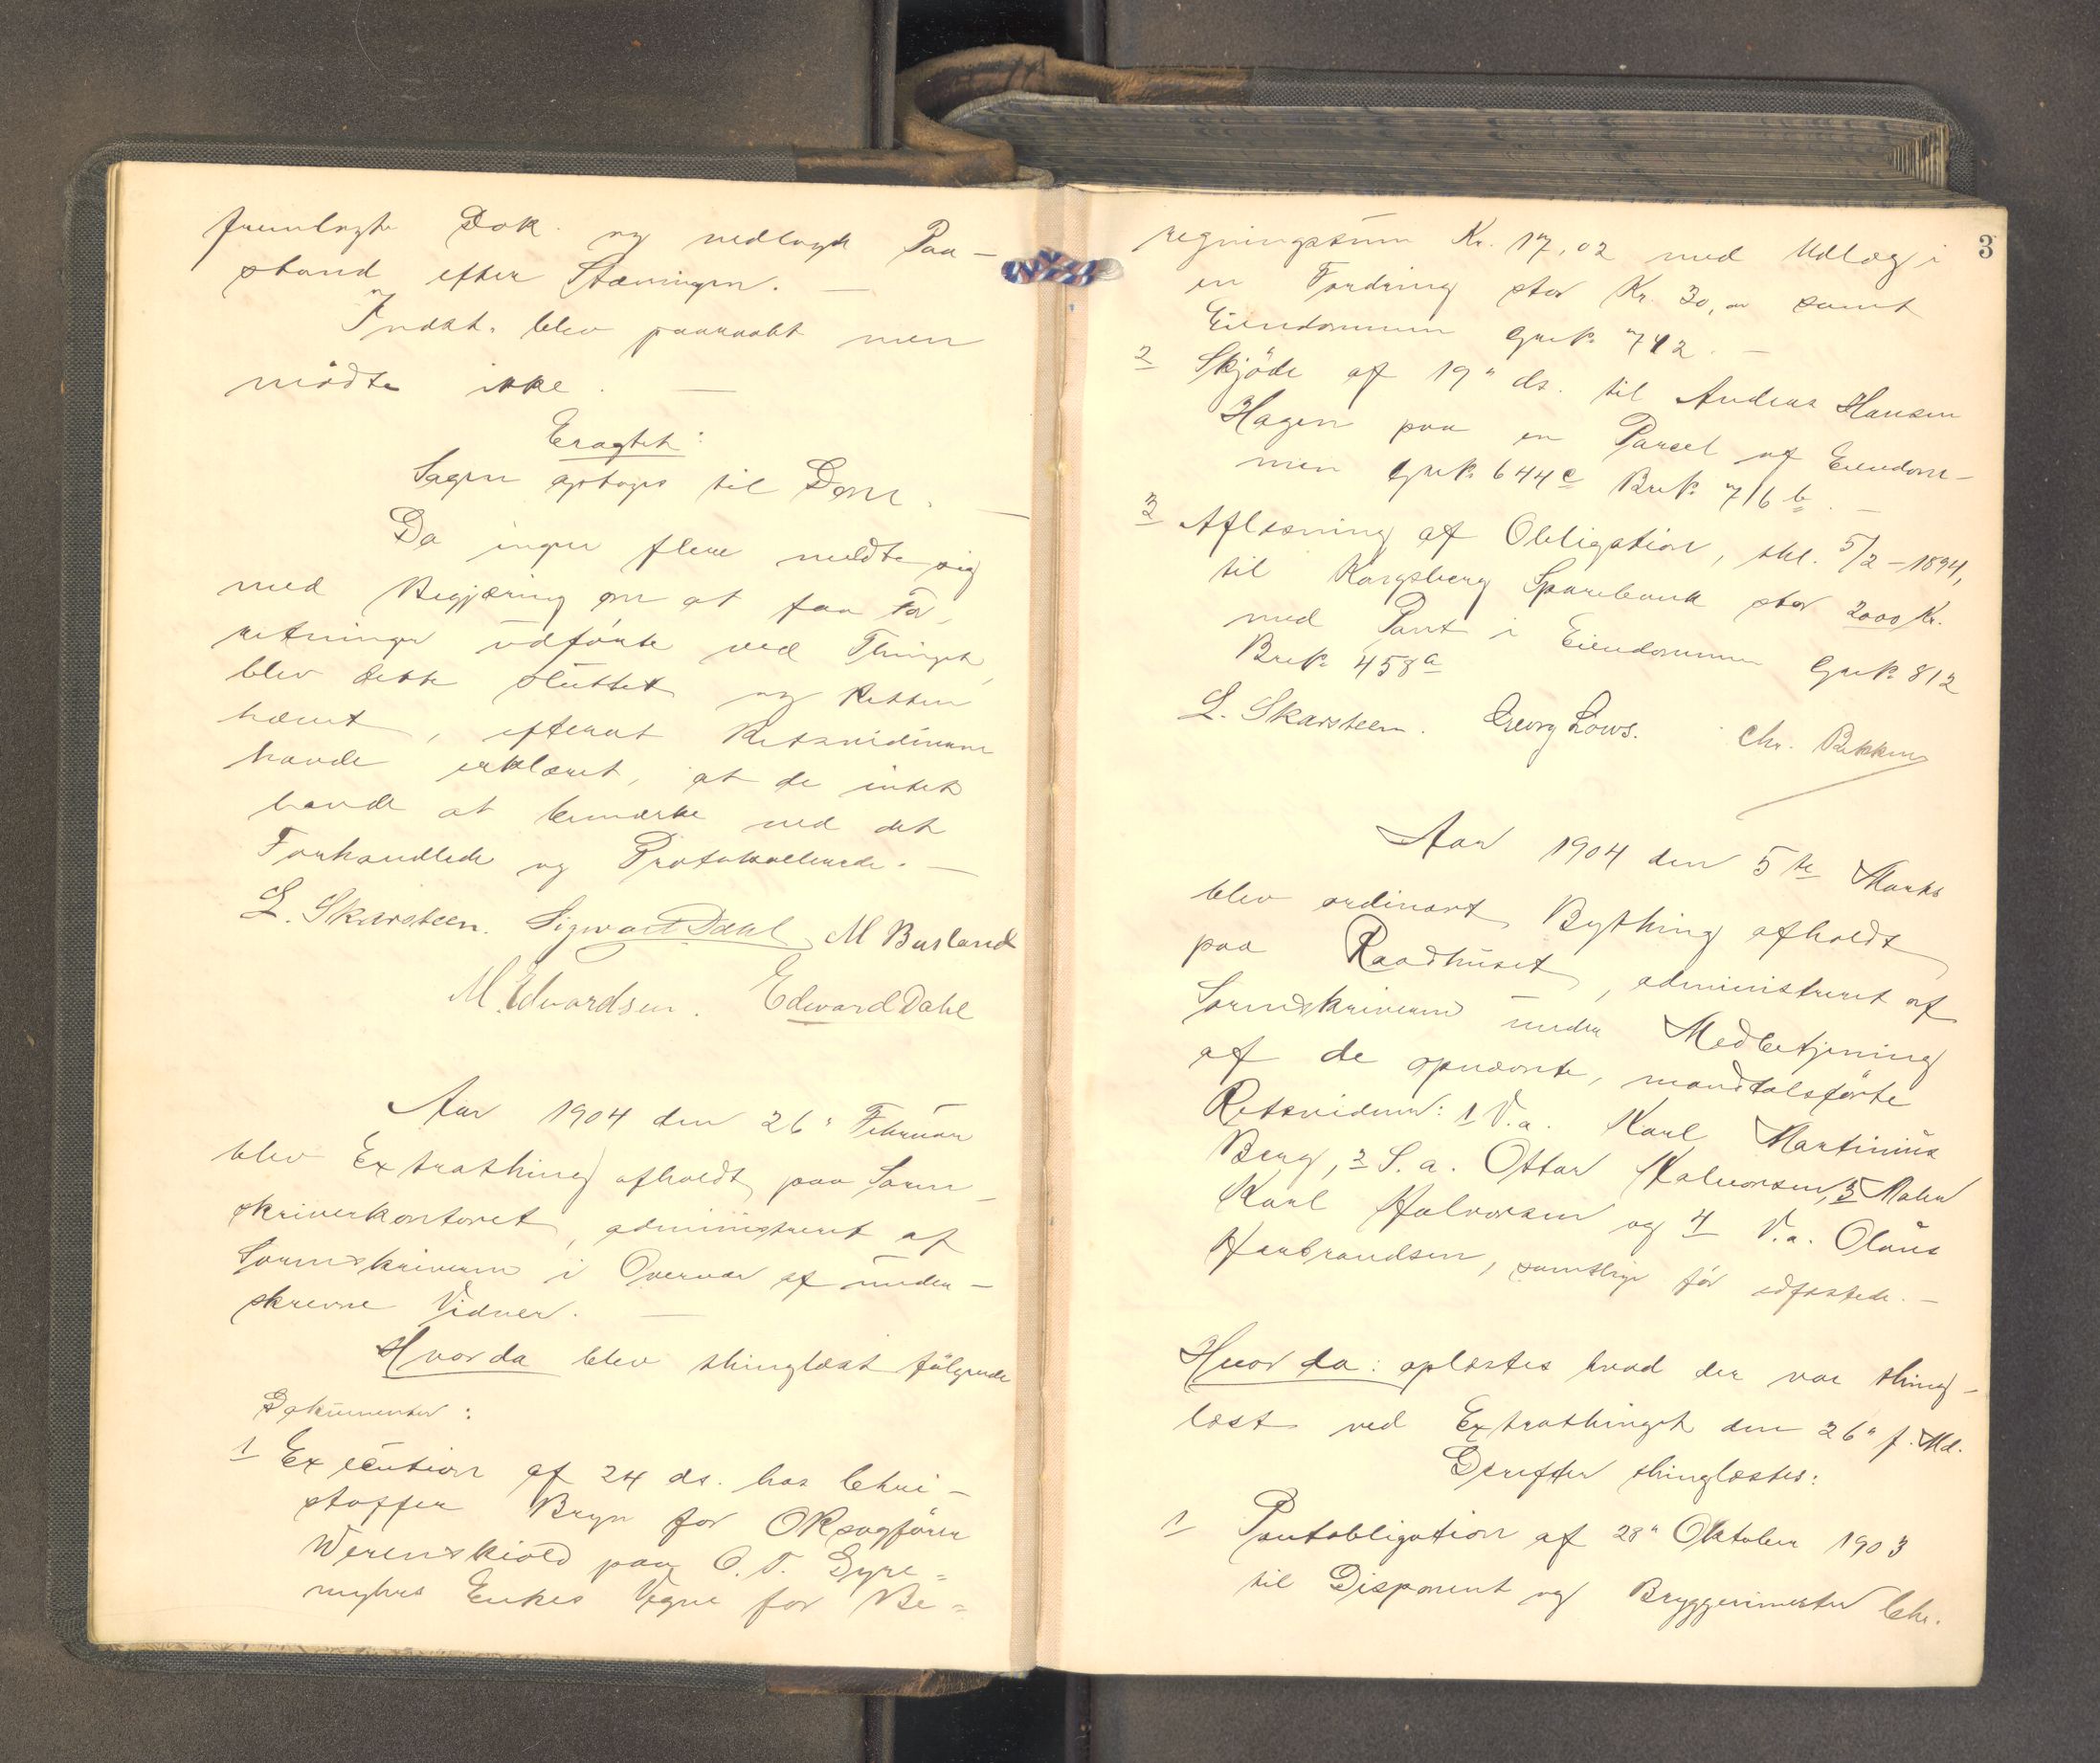 fremlagte Dok. og nedlagde Paa-
stand efter Stævningen. —
Indst. blev paaraabt men
mödte ikke. —
Eragtet:
Sagen optages til Dom. —
Da ingen flere meldte sig
med Begjæring om at faa For-
retninger udförte ved Thinget,
blev dette sluttet og Retten
hævet, efterat Retsvidnerne
havde erklæret, at de intet
havde at bemærke ved det
Forhandlede og Protokollerede. —
L. Skarsteen. Sigwart Dahl M Busland
M. Edvardsen. Edward Dahl
Aar 1904 den 26" Februar
blev Extrathing afholdt paa Soren-
skriverkontoret, administreret af
Sorenskriveren i Overvær af under-
skrevne Vidner. —
Hvorda blev thinglæst fölgende
Dokumenter:
1 Execution af 24 ds. hos Chri-
stoffer Bryn for ORsagförer
Werenskiold paa O. T. Gyre=
myhrs Enkes Vegne for Be=
3
regningssum Kr. 17,02 med Udlæg i
en Fordring stor Kr. 30,00 samt
Eiendommen Gr.№ 742. —
2 Skjöde af 19" ds. til Andreas Hansen
Hagen paa en Parcel af Eiendom-
men Gr.№ 644c Br.№ 716b. —
3 Aflæsning af Obligation, thl. 5/2-1894,
til Kongsberg Sparebank stor 2000 Kr.
med Pant i Eiendommen Gr.№ 812
Br.№ 458a
L. Skarsteen. Georg Lows. Chr. Bakken
Aar 1904 den 5te Marts
blev ordinært Bything afholdt
paa Raadhuset, administreret af
Sorenskriveren under Medbetjening
af de opnævnte, mandtalsförte
Retsvidner: 1 V.a. Karl Martinius
Berg, 2 S.a. Ottar Halvorsen, 3 Maler
Karl Halvorsen og 4 V.a. Olaus
Herbrandsen, samtlige för edfæstede. —
Hvor da: oplæstes hvad der var thing-
læst ved Extrathinget den 26" f. Md.
Derefter thinglæstes:
1 Pantobligation af 28" Oktober 1903
til Disponent og Bryggerimester Chr.